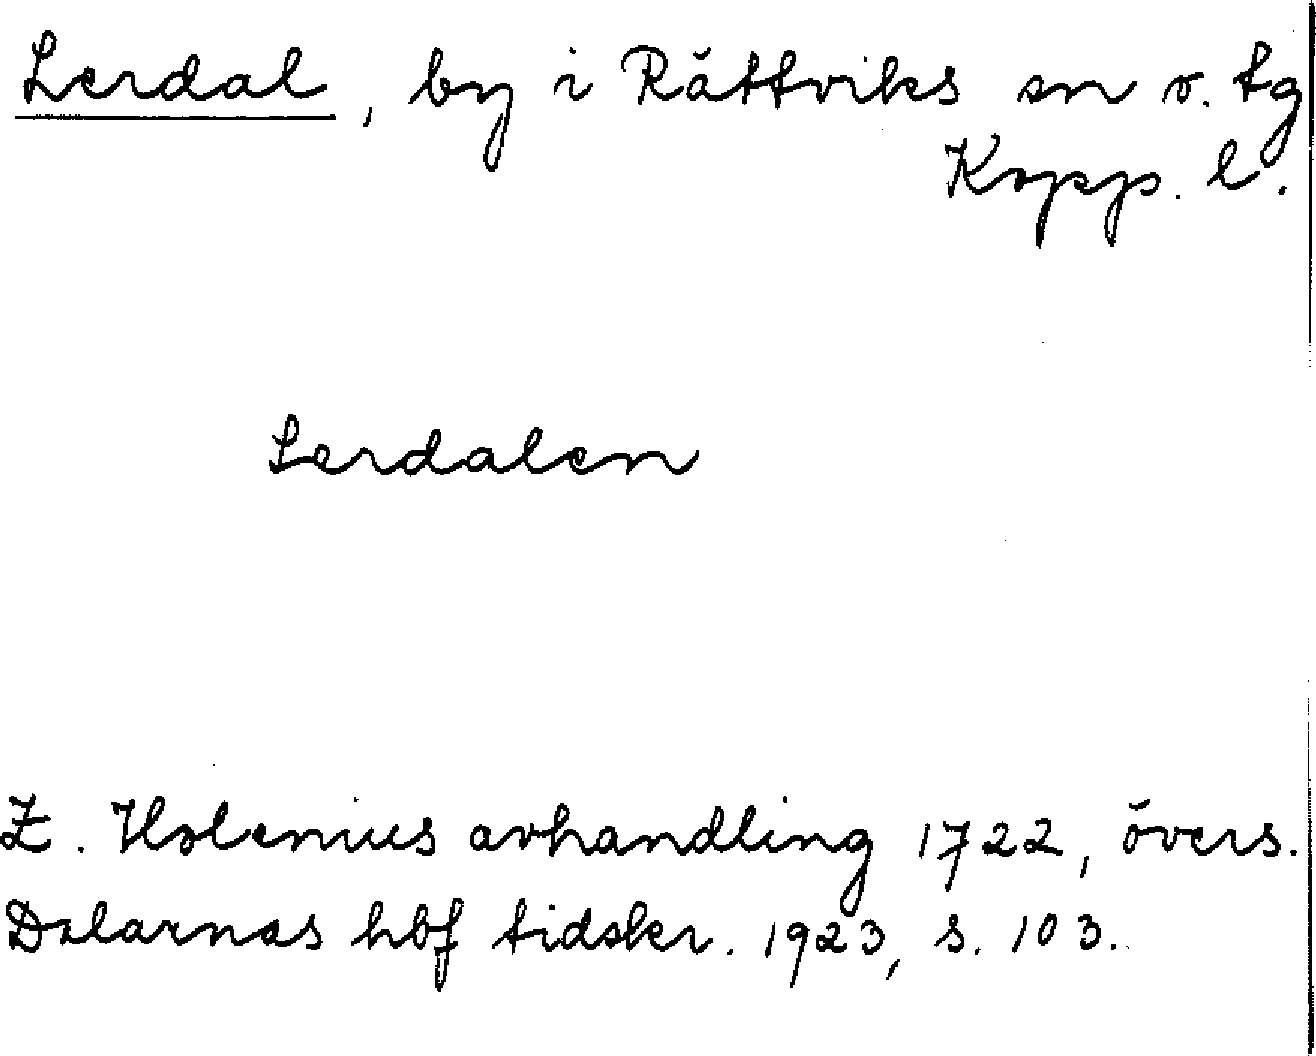 Lerdal, by i Rättviks sn o. tg
Kopp. l.
Lerdalen
Z. Holenius avhandling 1722, övers.
Dalarnas hbf tidskr. 1923, s. 103.